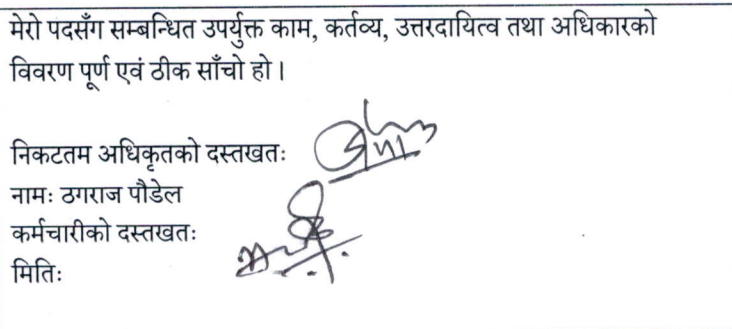 मेरो पदसँग सम्बन्धित उपर्युक्त काम, कर्तव्य, उत्तरदायित्व तथा अधिकारको
विवरण पूर्ण एवं ठीक साँचो हो।
निकटतम अधिकृतको दस्तखतः
नामः ठगराज पौडेल
कर्मचारीको दस्तखतः
मितिः